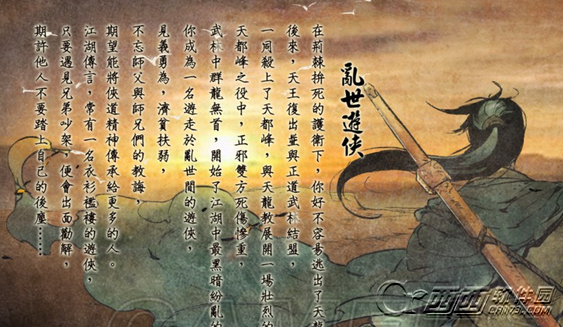 亂世遊俠
在荊棘拚死的護衛下，你好不容易逃出了天龍
後來，天王復出並與正道武林結盟，
一同殺上了天都峰，與天龍教展開一場壯烈的
天都峰之役中，正邪雙方死傷慘重，
武林中群龍無首，開始了江湖中最黑暗紛亂的
你成為一名遊走於亂世間的遊俠，
見義勇為，濟貧扶弱，
不忘師父與師兄們的教誨，
期望能將俠道精神傳承給更多的人。
江湖傳言，常有一名衣衫襤褸的遊俠，
只要遇見兄弟吵架，便會出面勸解，
期許他人不要踏上自己的後塵……
西西软件园
CR173.COM